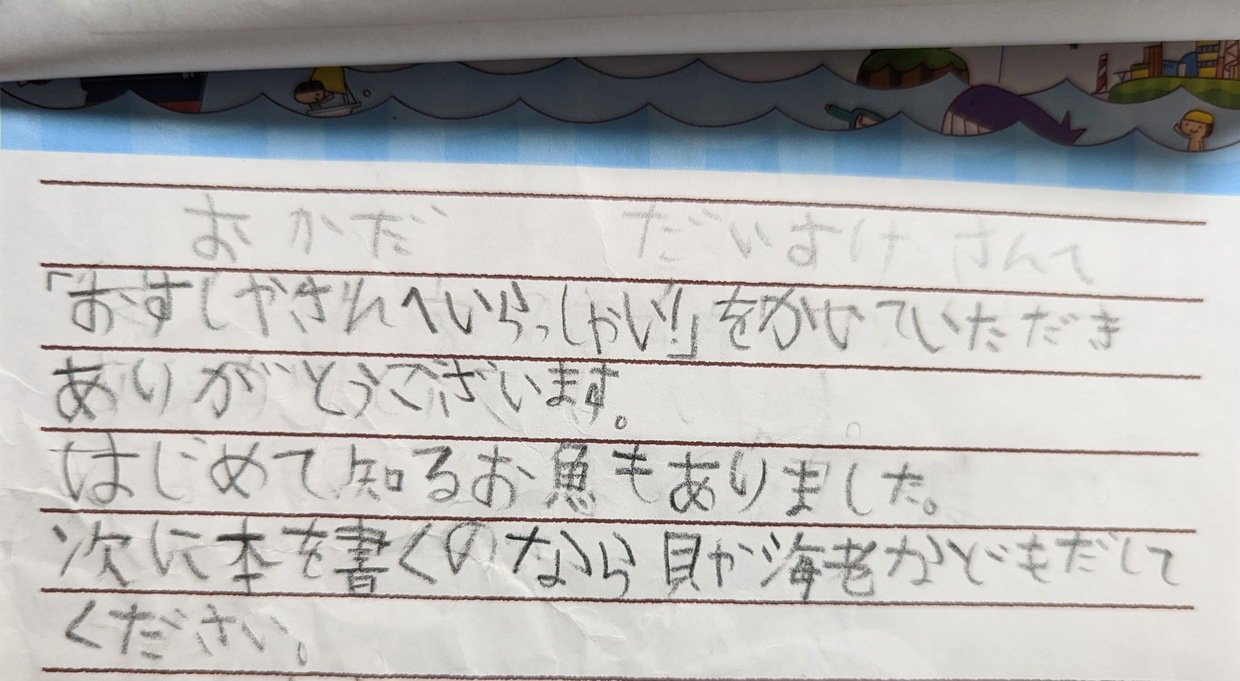 おかだ だいすけ さんて
「おすしやさんへいらっしゃい!」をかいていただき
ありがとうございます。
はじめて知るお魚もありました。
次に本を書くのなら貝や海老などもだして
ください。